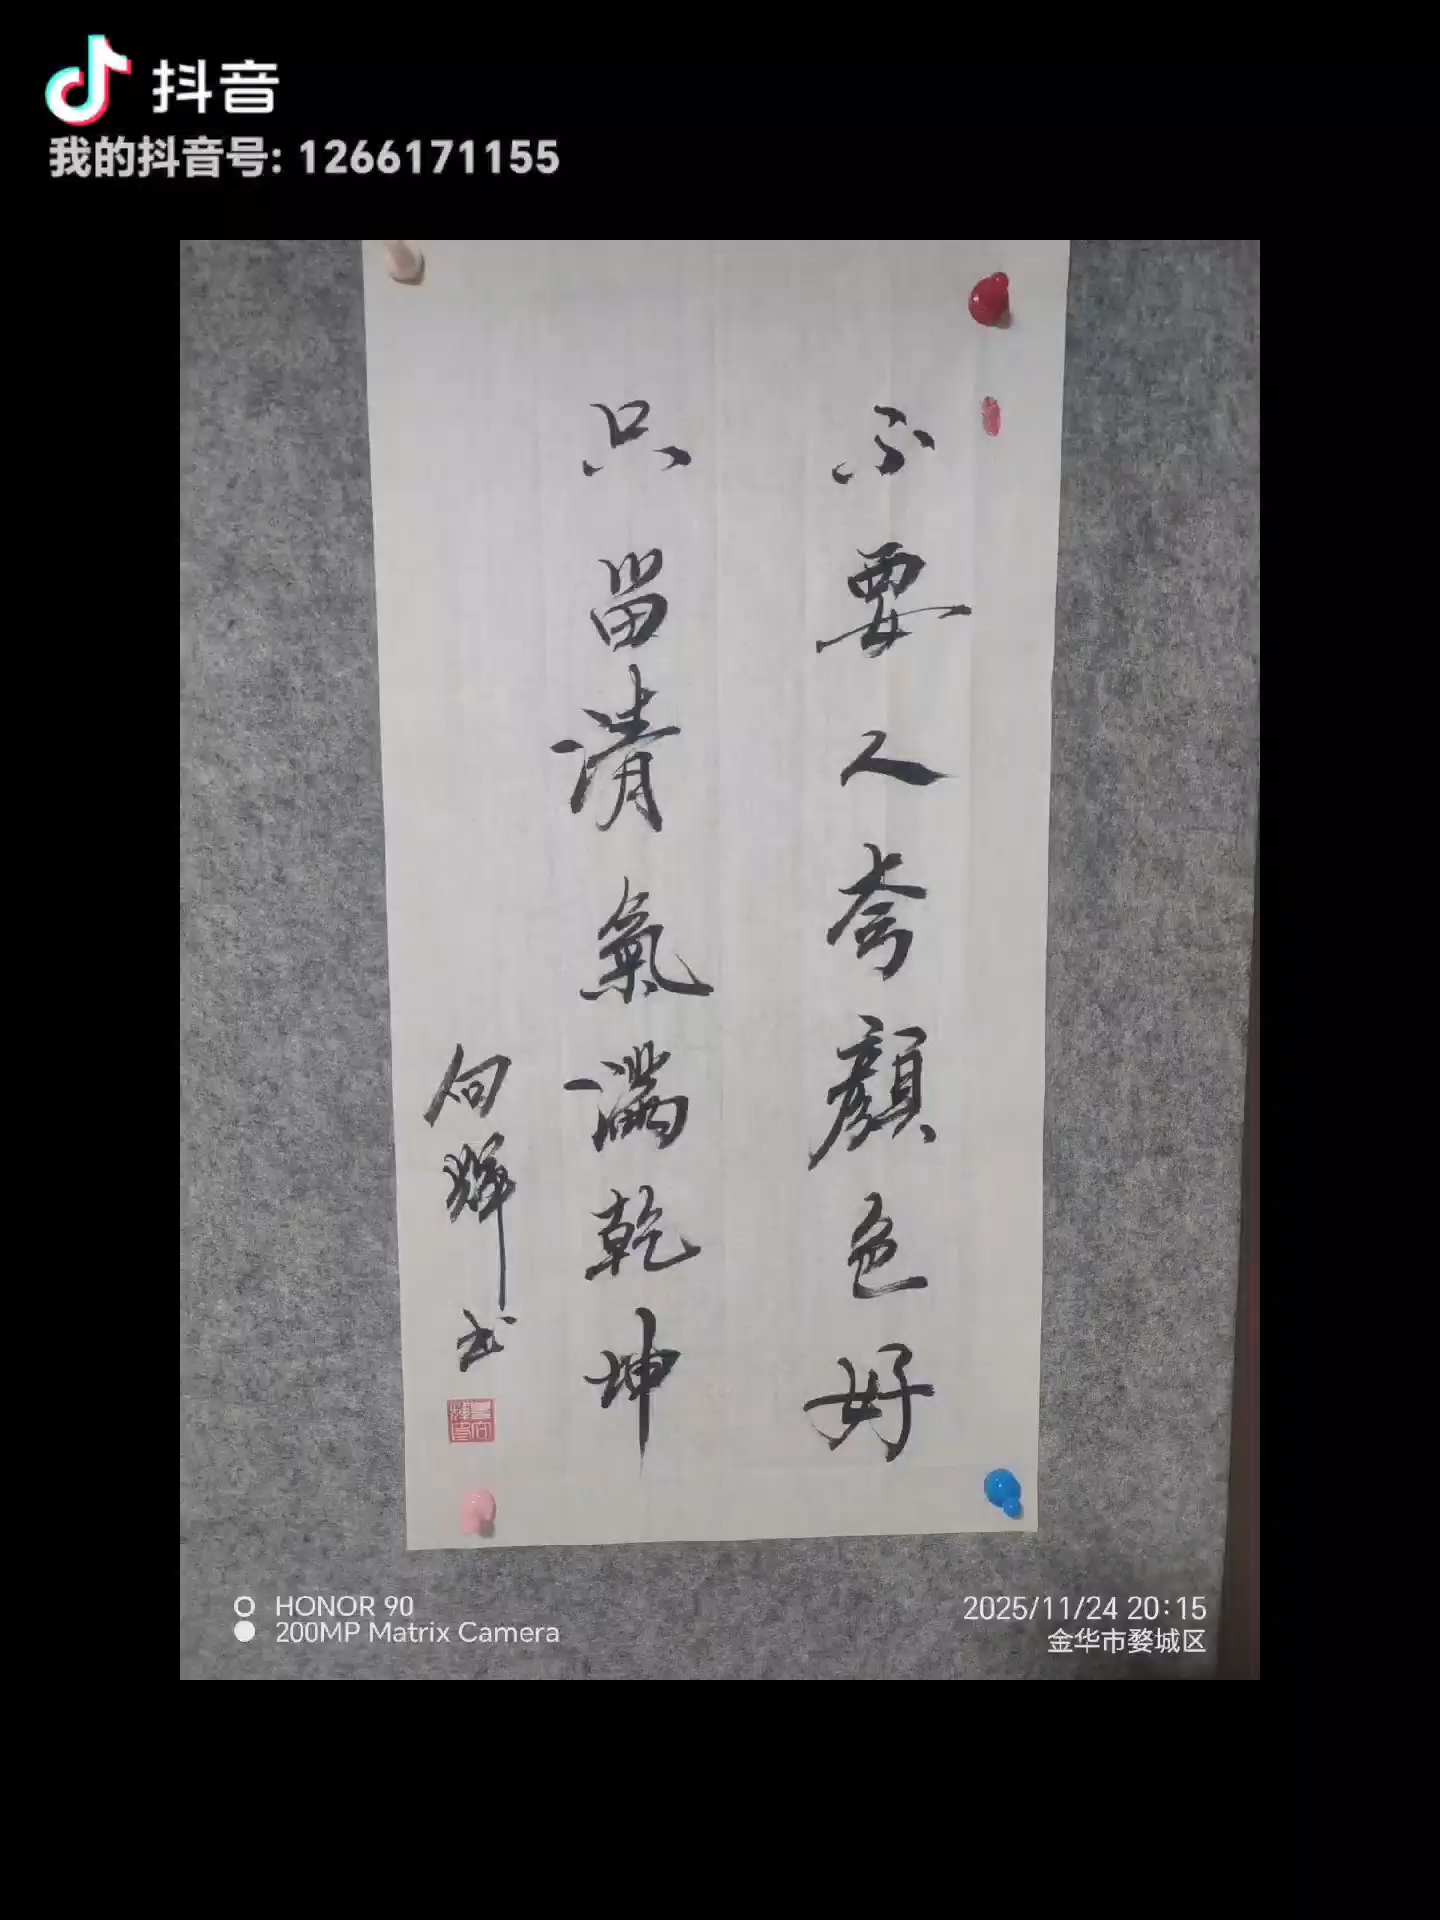 抖音
我的抖音号: 1266171155
不要人夸顔色好
只留清氣滿乾坤
向輝书
HONOR 90
200MP Matrix Camera
2025/11/24 20:15
金华市婺城区